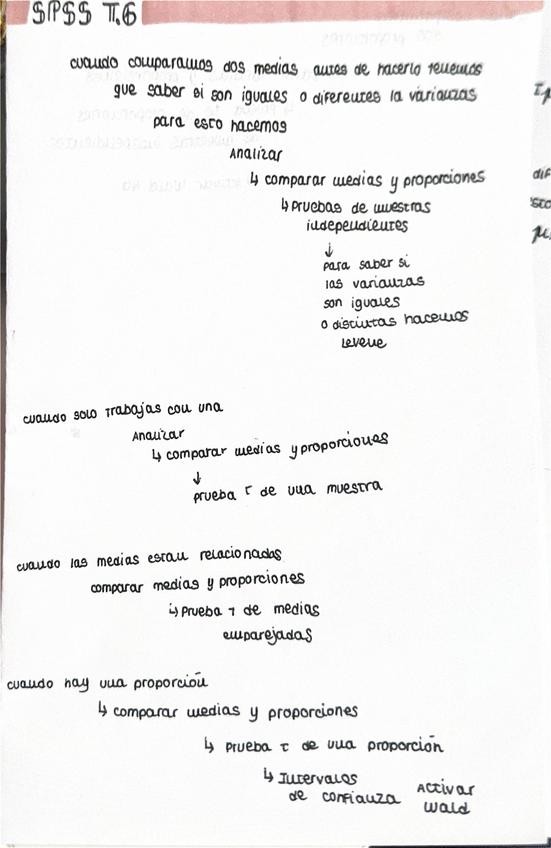 SPSS T.6
cuando comparamos dos medias, antes de hacerlo tenemos
que saber si son iguales o diferentes la varianzas
para esto hacemos
Analizar
↳ comparar medias y proporciones
↳ Pruebas de muestras
independientes
↓
para saber si
las varianzas
son iguales
o distintas hacemos
Levene
cuando solo trabajas con una
Analizar
↳ comparar medias y proporciones
↓
prueba T de una muestra
cuando las medias estan relacionadas
comparar medias y proporciones
↳ Prueba T de medias
emparejadas
cuando hay una proporción
↳ comparar medias y proporciones
↳ Prueba T de una proporción
↳ Intervalos
de confianza Activar
Wald